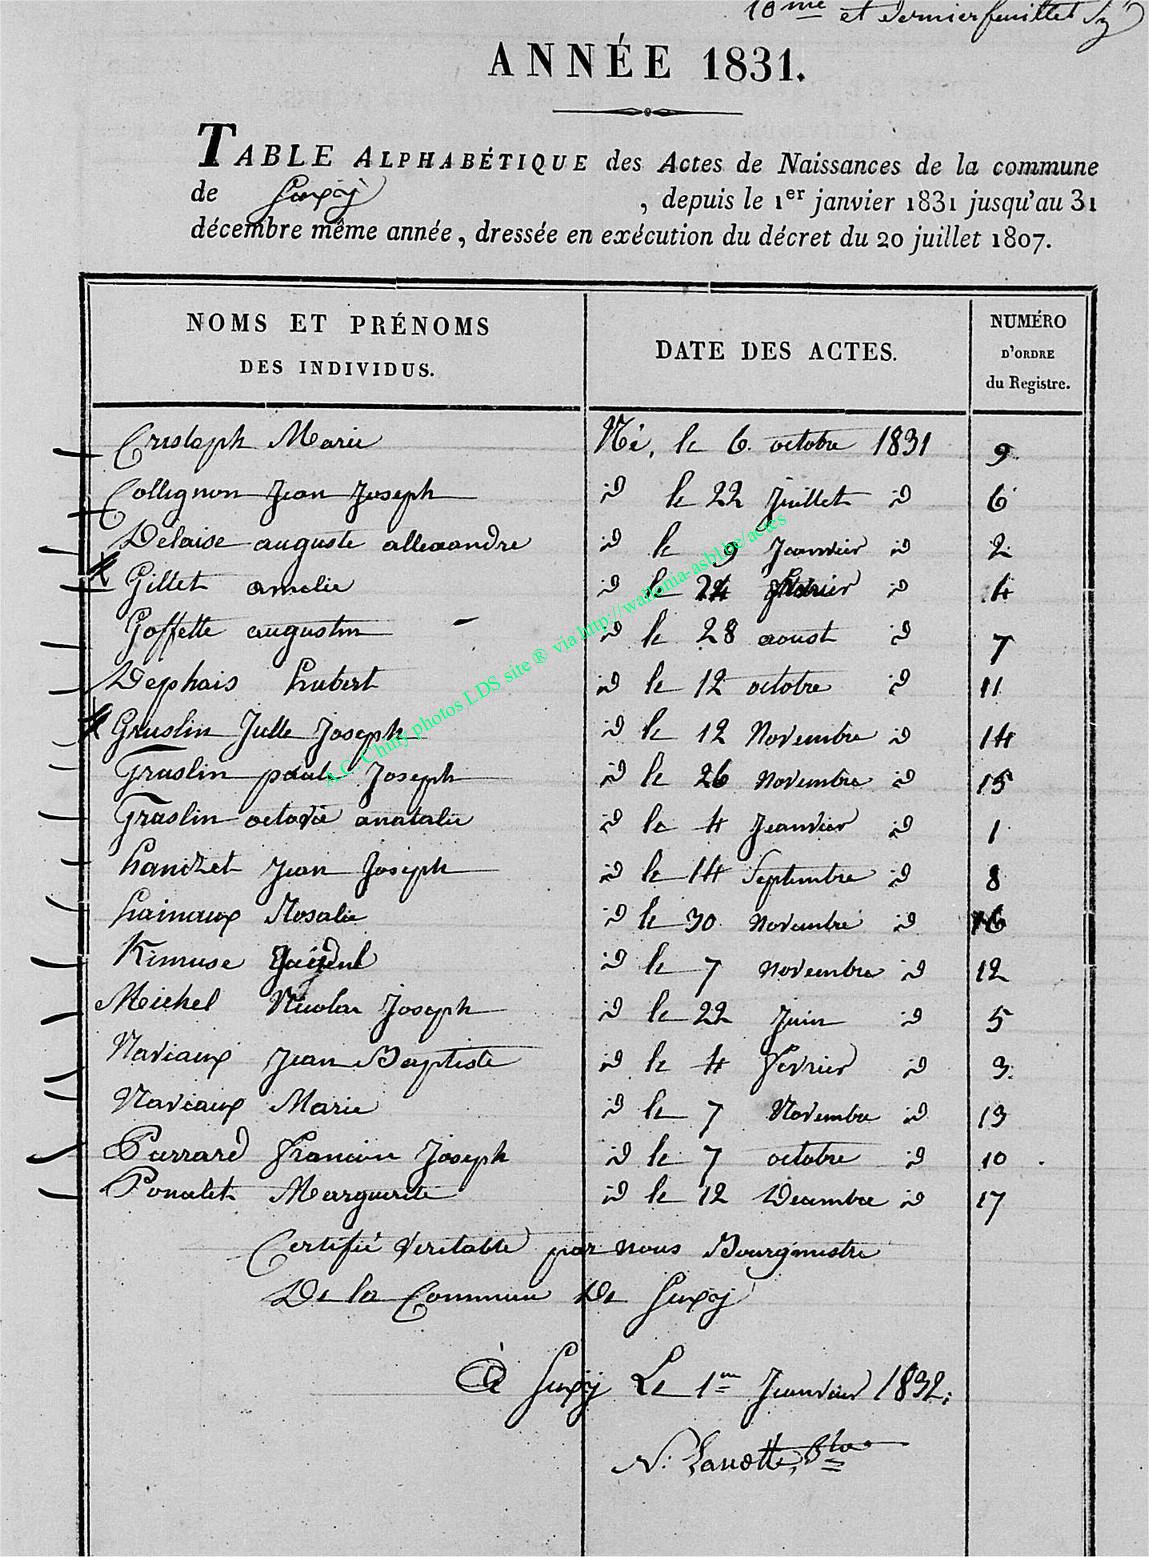 10me et dernier feuillet
ANNÉE 1831.
TABLE ALPHABÉTIQUE des Actes de Naissances de la commune
de Supxy , depuis le 1er janvier 1831 jusqu'au 31
décembre même année, dressée en exécution du décret du 20 juillet 1807.
NOMS ET PRÉNOMS DES INDIVIDUS. DATE DES ACTES. NUMÉRO D'ORDRE du Registre.
Cristoph Marie Né, le 6. octobre 1831 9
Collignon Jean Joseph id le 22 Juillet id 6
Delaise auguste allexandre id le 9 Jeanvier id 2
Gillet amelie id le 24 fevrier id 4
Goffette augustin id le 28 aoust id 7
Dephais hubert id le 12 octobre id 11
Graslin Julle Joseph id le 12 Novembre id 14
Graslin paul Joseph id le 26 novembre id 15
Graslin octavie anatalie id le 4 Jeanvier id 1
hanchet Jean Joseph id le 14 Septembre id 8
hainaux Rosalie id le 30 novembre id 16
Kimuse id le 7 novembre id 12
Michel Nicolas Joseph id le 22 Juin id 5
Naviaux Jean Baptiste id le 4 fevrier id 3
Naviaux Marie id le 7 Novembre id 13
Parrard francois Joseph id le 7 octobre id 10
Ponalet Marguerite id le 12 Decembre id 17
Certifié veritable par nous Bourgmestre
De la Commune De
À Le 1er Jeanvier 1832.
N: Lanotte
A.C. Chiny photos LDS site ® via http://wallonia-asbl.be/actes